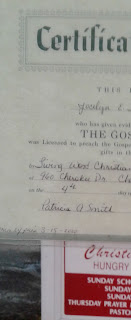 Certifica
THIS
Jocelyn
who has given evid
THE GOS
was Licensed to preach the Gospel
gifts in th
Living Word Christian
at 960 Christie Dr. Ch
on the 9th day
Patricia A Smith
Christi
HUNGRY
SUNDAY SCH
SUNDAY
SUNDAY
THURSDAY PRAYER
PASTOR